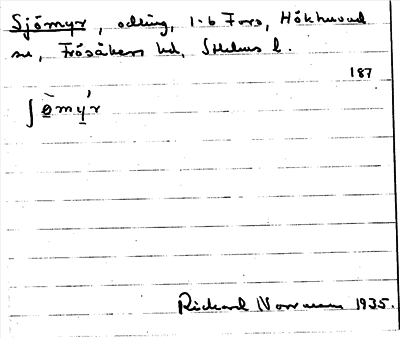 Sjömyr, odling, 1-6 Fors, Hökhuvud
sn, Frösåkers hd, Sthlms l.
187
ʃø̀my´r
Richard Norrman 1935.